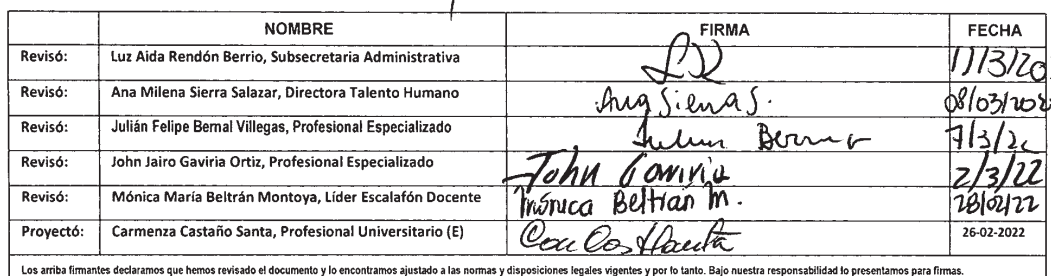 NOMBRE FIRMA FECHA
Revisó: Luz Aida Rendón Berrio, Subsecretaria Administrativa 11/3/20
Revisó: Ana Milena Sierra Salazar, Directora Talento Humano Ana Sierra S. 08/03/202
Revisó: Julián Felipe Bernal Villegas, Profesional Especializado Julian Bernal 7/3/2
Revisó: John Jairo Gaviria Ortiz, Profesional Especializado John Gaviria 2/3/22
Revisó: Mónica María Beltrán Montoya, Líder Escalafón Docente Mónica Beltrán M. 28/02/22
Proyectó: Carmenza Castaño Santa, Profesional Universitario (E) 26-02-2022
Los arriba firmantes declaramos que hemos revisado el documento y lo encontramos ajustado a las normas y disposiciones legales vigentes y por lo tanto. Bajo nuestra responsabilidad lo presentamos para firmas.